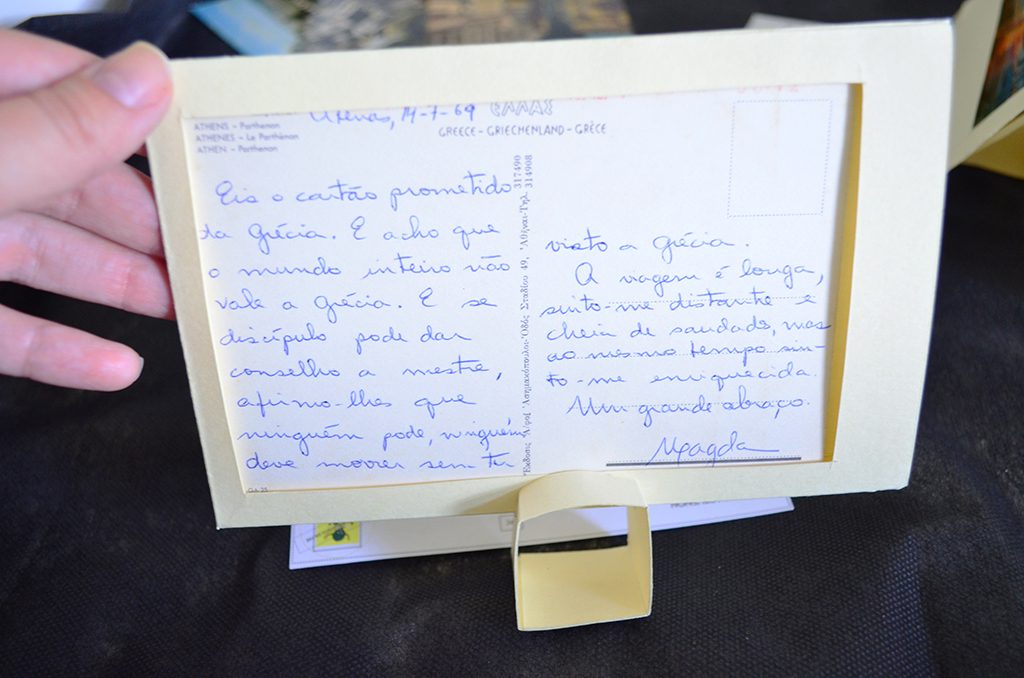 Atenas, 14-7-69
ΕΛΛΑΣ
GREECE - GRIECHENLAND - GRÈCE
ATHENS - Parthenon
ATHENES - Le Parthénon
ATHEN - Parthenon
Eis o cartão prometido
da Grécia. E acho que
o mundo inteiro não
vale a Grécia. E se
discípulo pode dar
conselho a mestre,
afirmo-lhes que
ninguém pode, ninguém
deve morrer sem ter
GA-25
Ἔκδοσις Ἀφοί Ἀσημακόπουλοι-Ὁδός Σταδίου 49, Ἀθῆναι-Τηλ. 317490
314908
visto a Grécia.
A viagem é longa,
sinto-me distante e
cheia de saudade, mas
ao mesmo tempo sin-
to-me enriquecida.
Um grande abraço.
Magda